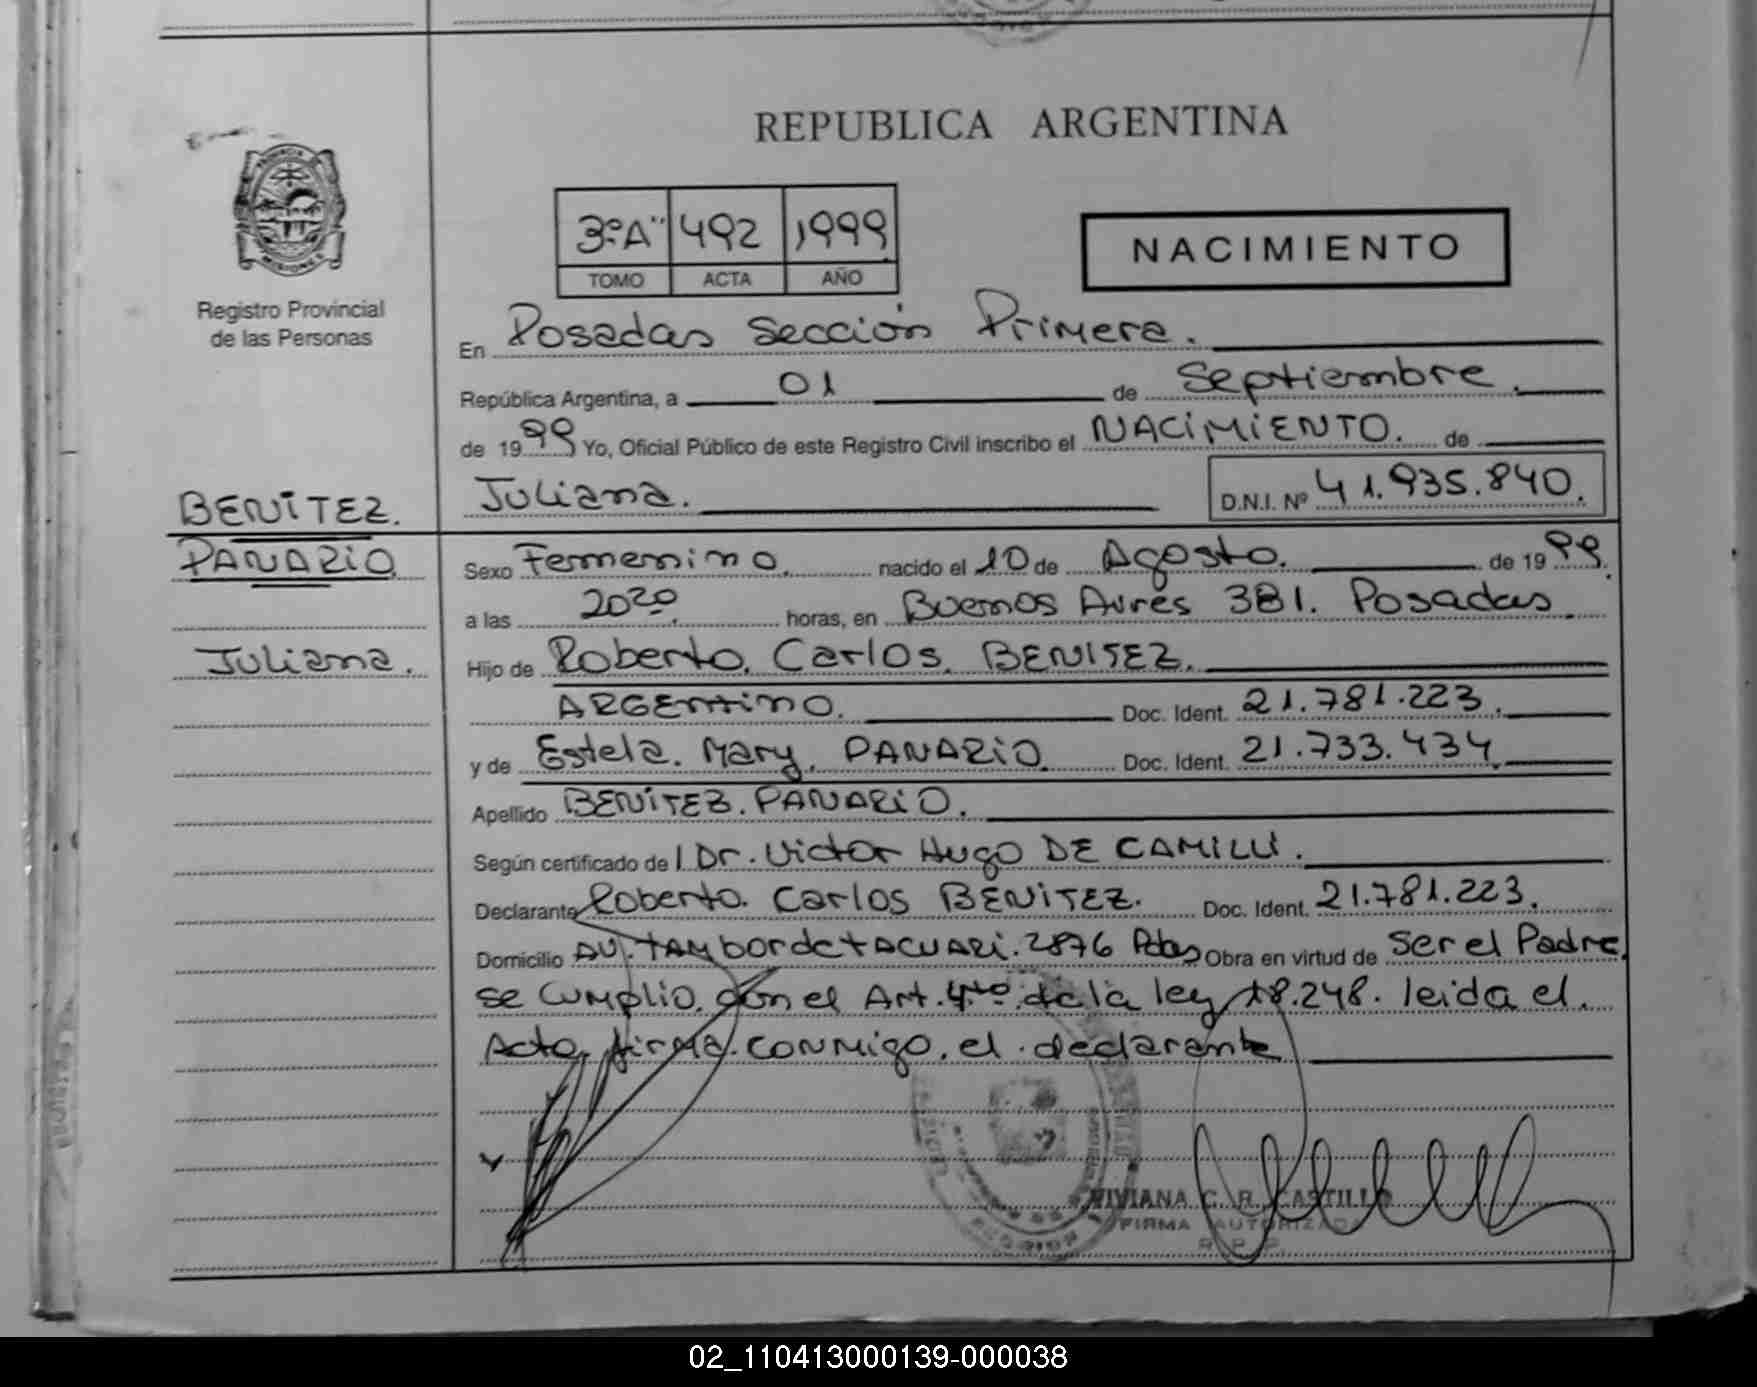 REPUBLICA ARGENTINA
3º "A" 492 1999
TOMO ACTA AÑO
NACIMIENTO
Registro Provincial
de las Personas
En Posadas Sección Primera.
República Argentina, a 01 de Septiembre.
de 1999 Yo, Oficial Público de este Registro Civil inscribo el NACIMIENTO. de
BENITEZ. Juliana. D.N.I. Nº 41.935.840.
PANARIO Sexo Femenino. nacido el 10 de Agosto. de 1999.
a las 2020. horas, en Buenos Aires 381. Posadas.
Juliana. Hijo de Roberto. Carlos. BENITEZ.
ARGENTINO. Doc. Ident. 21.781.223.
y de Estela. Mary. PANARIO. Doc. Ident. 21.733.434.
Apellido BENITEZ. PANARIO.
Según certificado de l Dr. Victor Hugo DE CAMILLI.
Declarante Roberto. Carlos BENITEZ. Doc. Ident. 21.781.223.
Domicilio AV. TAMbor de tACUARi. 2876 Pdas Obra en virtud de Ser el Padre.
se cumplio. con el Art. 4to. de la ley 18.248. leida el.
Acta. firma. conmigo. el. declarante
VIVIANA C. R. CASTILLO
FIRMA AUTORIZADA
R. P. P.
02_110413000139-000038